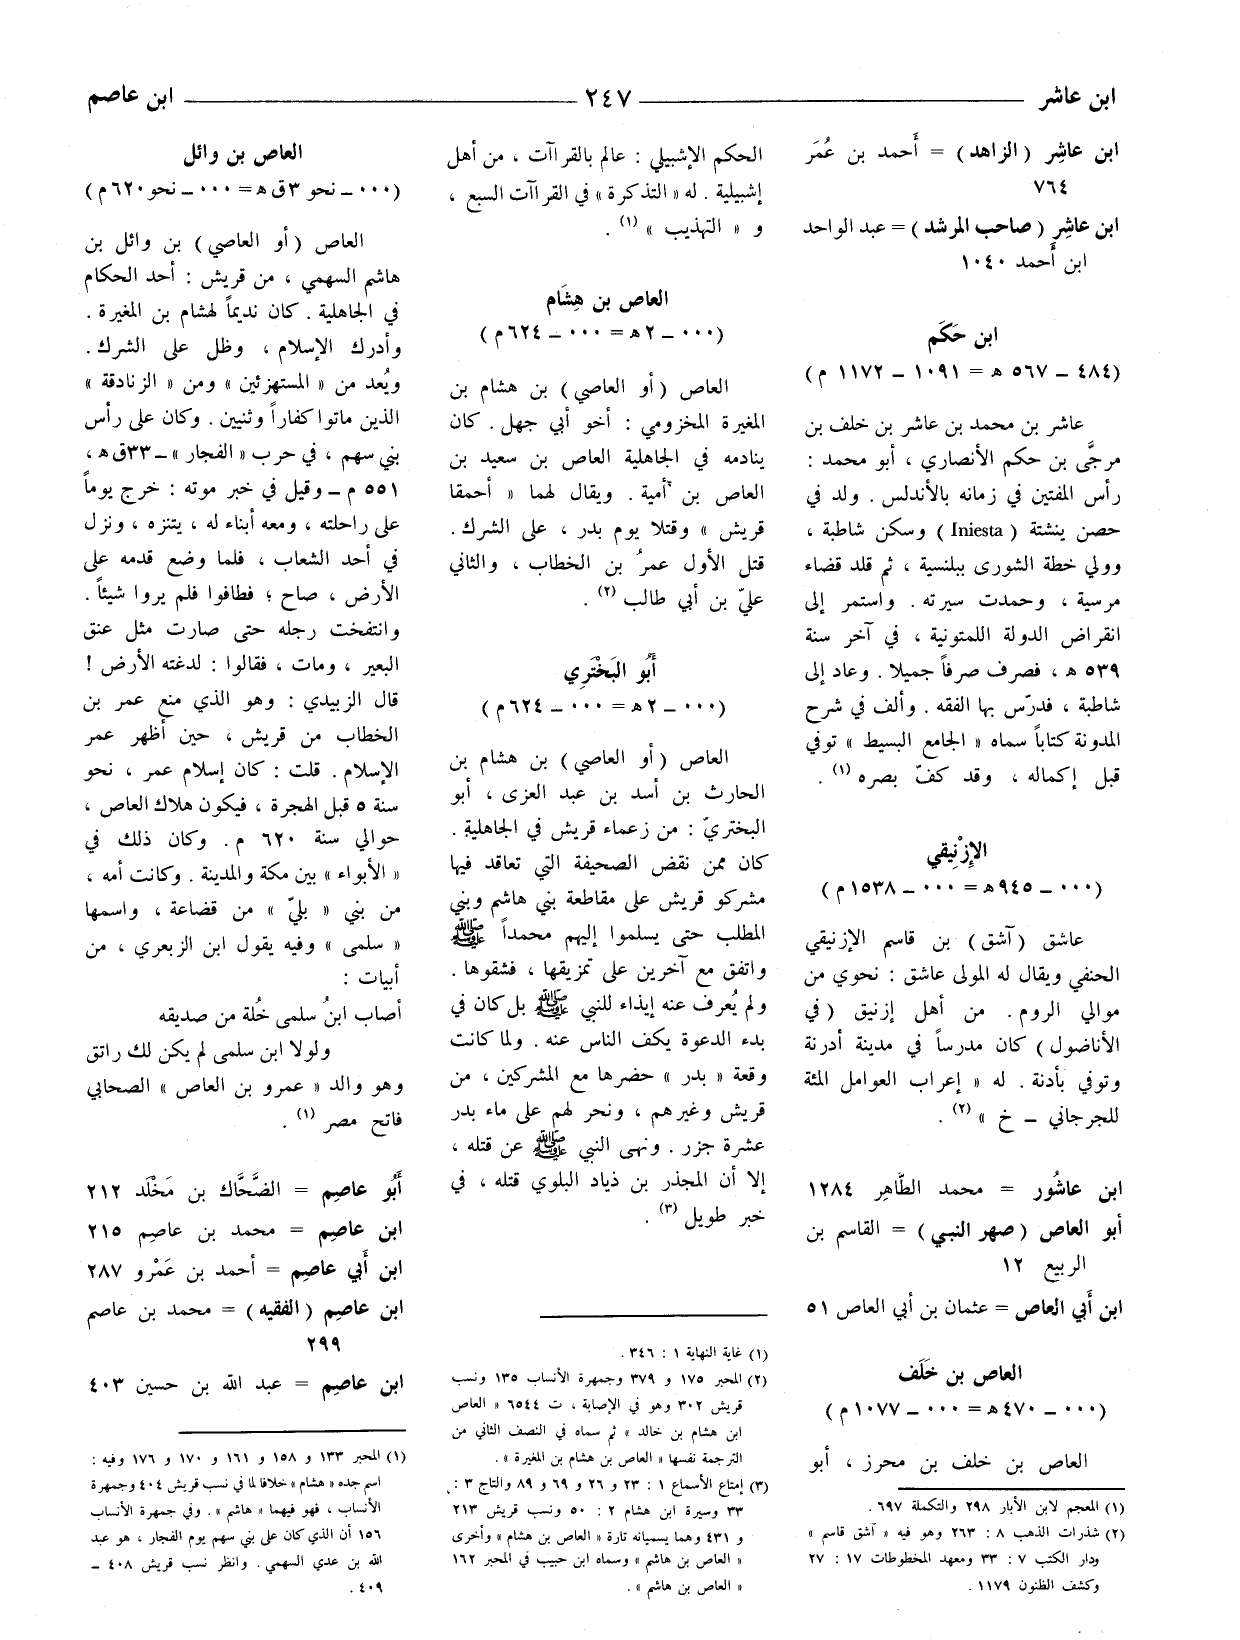 ابن عاشر ــــــ ٢٤٧ ــــــ ابن عاصم
ابن عاشِر (الزاهد) = أَحمد بن عُمَر
٧٦٤
ابن عاشِر (صاحب المرشد) = عبد الواحد
ابن أَحمد ١٠٤٠
ابن حَكَم
(٤٨٤ ــ ٥٦٧ ه = ١٠٩١ ــ ١١٧٢ م)
عاشر بن محمد بن عاشر بن خلف بن
مرجَّى بن حكم الأنصاري ، أبو محمد :
رأس المفتين في زمانه بالأندلس . ولد في
حصن ينشتة (Iniesta) وسكن شاطبة ،
وولي خطة الشورى ببلنسية ، ثم قلد قضاء
مرسية ، وحمدت سيرته . واستمر إلى
انقراض الدولة اللمتونية ، في آخر سنة
٥٣٩ ه ، فصرف صرفاً جميلا . وعاد إلى
شاطبة ، فدرّس بها الفقه . وألف في شرح
المدونة كتاباً سماه « الجامع البسيط » توفي
قبل إكماله ، وقد كفّ بصره (١) .
الإِزْنِيقي
(٠٠٠ ــ ٩٤٥ه = ٠٠٠ ــ ١٥٣٨م)
عاشق (آشق) بن قاسم الإزنيقي
الحنفي ويقال له المولى عاشق : نحوي من
موالي الروم . من أهل إزنيق (في
الأناضول) كان مدرساً في مدينة أدرنة
وتوفي بأدنة . له « إعراب العوامل المئة
للجرجاني ــ خ » (٢) .
ابن عاشُور = محمد الطَّاهِر ١٢٨٤
أبو العاص (صهر النبي) = القاسم بن
الربيع ١٢
ابن أَبي العاص = عثمان بن أبي العاص ٥١
العاص بن خَلَف
(٠٠٠ ــ ٤٧٠ه = ٠٠٠ ــ ١٠٧٧م)
العاص بن خلف بن محرز ، أبو
(١) المعجم لابن الأبار ٢٩٨ والتكملة ٦٩٧.
(٢) شذرات الذهب ٨ : ٢٦٣ وهو فيه « آشق قاسم »
ودار الكتب ٧ : ٣٣ ومعهد المخطوطات ١٧ : ٢٧
وكشف الظنون ١١٧٩ .
الحكم الإشبيلي : عالم بالقراآت ، من أهل
إشبيلية . له « التذكرة » في القراآت السبع ،
و « التهذيب » (١) .
العاص بن هِشَام
(٠٠٠ ــ ٢ه = ٠٠٠ ــ ٦٢٤م)
العاص (أو العاصي) بن هشام بن
المغيرة المخزومي : أخو أبي جهل . كان
ينادمه في الجاهلية العاص بن سعيد بن
العاص بن أمية . ويقال لهما « أحمقا
قريش » وقتلا يوم بدر ، على الشرك .
قتل الأول عمرُ بن الخطاب ، والثاني
عليّ بن أبي طالب (٢) .
أَبُو البَخْتَرِي
(٠٠٠ ــ ٢ه = ٠٠٠ ــ ٦٢٤م)
العاص (أو العاصي) بن هشام بن
الحارث بن أسد بن عبد العزى ، أبو
البختريّ : من زعماء قريش في الجاهلية .
كان ممن نقض الصحيفة التي تعاقد فيها
مشركو قريش على مقاطعة بني هاشم وبني
المطلب حتى يسلموا إليهم محمداً ﷺ
واتفق مع آخرين على تمزيقها ، فشقوها .
ولم يُعرف عنه إيذاء للنبي ﷺ بل كان في
بدء الدعوة يكف الناس عنه . ولما كانت
وقعة « بدر » حضرها مع المشركين ، من
قريش وغيرهم ، ونحر لهم على ماء بدر
عشرة جزر . ونهى النبي ﷺ عن قتله ،
إلا أن المجذر بن ذياد البلوي قتله ، في
خبر طويل (٣) .
(١) غاية النهاية ١ : ٣٤٦ .
(٢) المحبر ١٧٥ و ٣٧٩ وجمهرة الأنساب ١٣٥ ونسب
قريش ٣٠٢ وهو في الإصابة ، ت ٦٥٤٤ « العاص
ابن هشام بن خالد » ثم سماه في النصف الثاني من
الترجمة نفسها « العاص بن هشام بن المغيرة » .
(٣) إمتاع الأسماع ١ : ٢٣ و ٢٦ و ٦٩ و ٨٩ والتاج ٣ :
٣٣ وسيرة ابن هشام ٢ : ٥٠ ونسب قريش ٢١٣
و ٤٣١ وهما يسميانه تارة « العاص بن هشام » وأخرى
« العاص بن هاشم » وسماه ابن حبيب في المحبر ١٦٢
« العاص بن هاشم » .
العاص بن وائل
(٠٠٠ ــ نحو ٣ق ه = ٠٠٠ ــ نحو ٦٢٠م)
العاص (أو العاصي) بن وائل بن
هاشم السهمي ، من قريش : أحد الحكام
في الجاهلية . كان نديماً لهشام بن المغيرة .
وأدرك الإسلام ، وظل على الشرك .
ويُعد من « المستهزئين » ومن « الزنادقة »
الذين ماتوا كفاراً وثنيين . وكان على رأس
بني سهم ، في حرب « الفجار » ــ ٣٣ق ه ،
٥٥١ م ــ وقيل في خبر موته : خرج يوماً
على راحلته ، ومعه أبناء له ، يتنزه ، ونزل
في أحد الشعاب ، فلما وضع قدمه على
الأرض ، صاح ؛ فطافوا فلم يروا شيئاً .
وانتفخت رجله حتى صارت مثل عنق
البعير ، ومات ، فقالوا : لدغته الأرض !
قال الزبيدي : وهو الذي منع عمر بن
الخطاب من قريش ، حين أظهر عمر
الإسلام . قلت : كان إسلام عمر ، نحو
سنة ٥ قبل الهجرة ، فيكون هلاك العاص ،
حوالي سنة ٦٢٠ م . وكان ذلك في
« الأبواء » بين مكة والمدينة . وكانت أمه ،
من بني « بليّ » من قضاعة ، واسمها
« سلمى » وفيه يقول ابن الزبعري ، من
أبيات :
أصاب ابنُ سلمى خُلة من صديقه
ولولا ابن سلمى لم يكن لك راتق
وهو والد « عمرو بن العاص » الصحابي
فاتح مصر (١) .
أَبُو عاصِم = الضَّحَّاك بن مَخْلَد ٢١٢
ابن عاصِم = محمد بن عاصِم ٢١٥
ابن أَبي عاصِم = أحمد بن عَمْرو ٢٨٧
ابن عاصِم (الفقيه) = محمد بن عاصم
٢٩٩
ابن عاصِم = عبد الله بن حسين ٤٠٣
(١) المحبر ١٣٣ و ١٥٨ و ١٦١ و ١٧٠ و ١٧٦ وفيه :
اسم جده « هشام » خلافا لما في نسب قريش ٤٠٤ وجمهرة
الأنساب ، فهو فيهما « هاشم » . وفي جمهرة الأنساب
١٥٦ أن الذي كان على بني سهم يوم الفجار ، هو عبد
الله بن عدي السهمي . وانظر نسب قريش ٤٠٨ ــ
٤٠٩ .